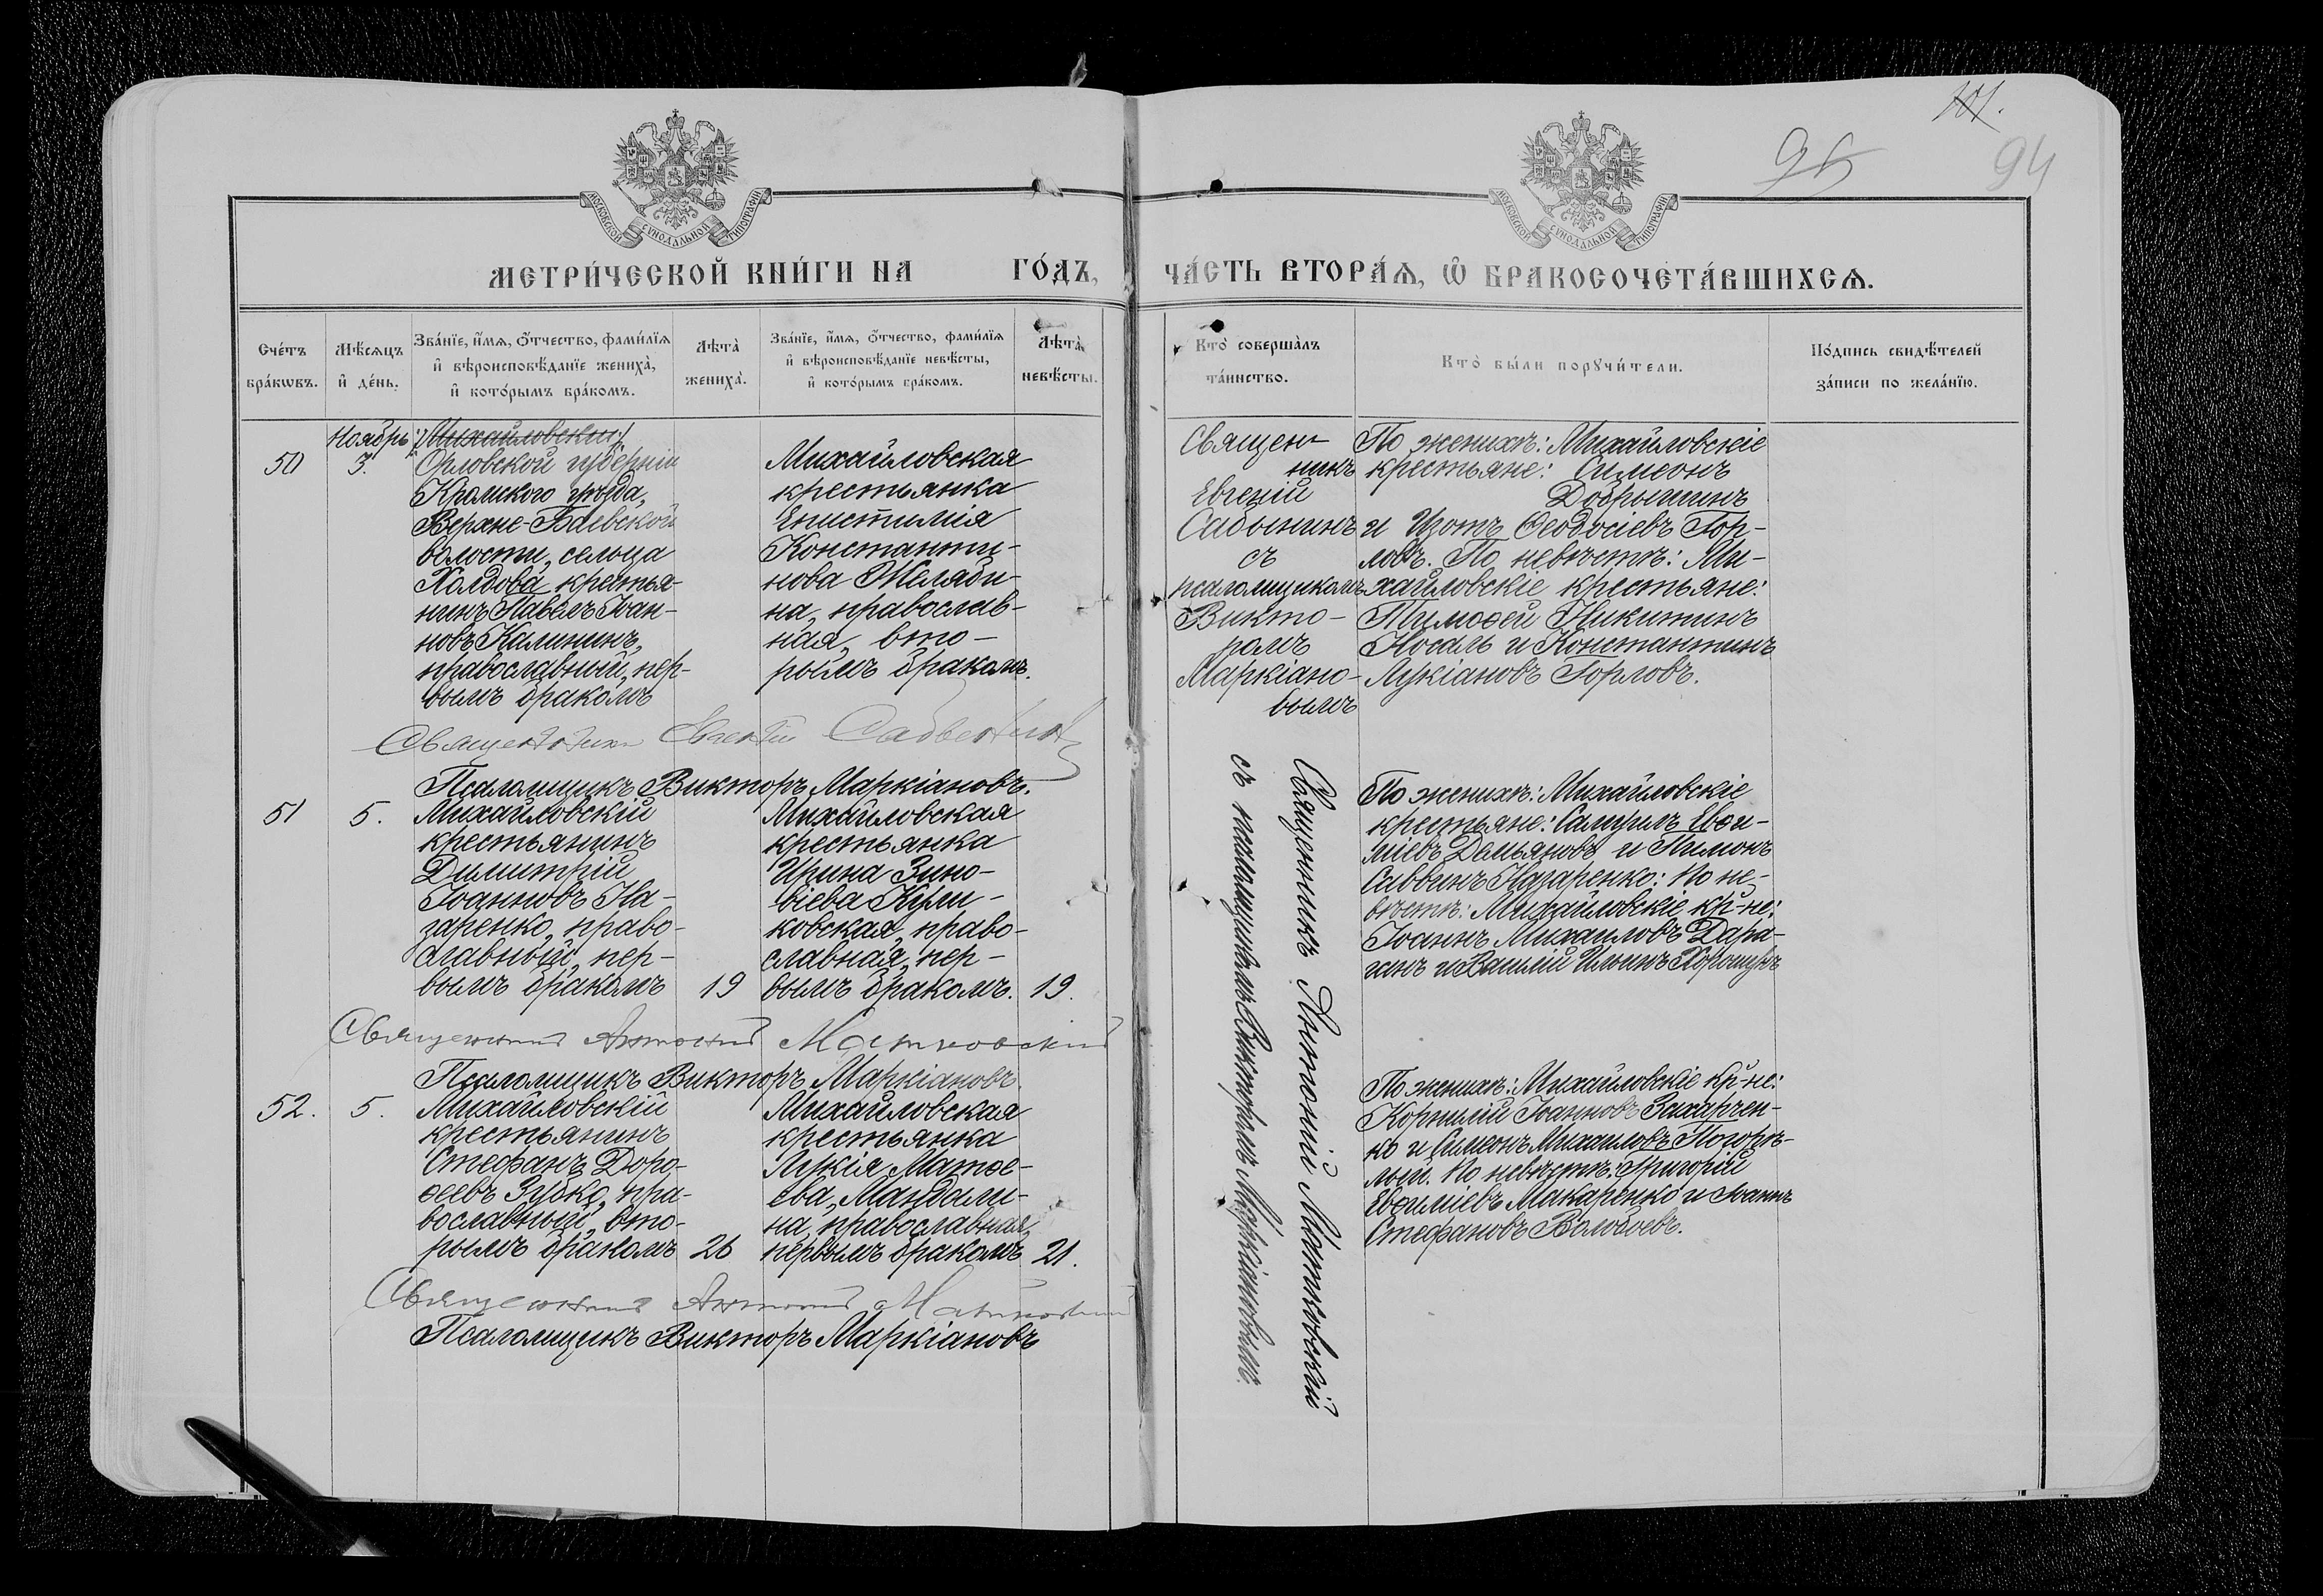 101.
95
94
МОСКОВСКОЙ СѴНОДАЛЬНОЙ ТИПОГРАФІИ
МОСКОВСКОЙ СѴНОДАЛЬНОЙ ТИПОГРАФІИ
МЕТРИ́ЧЕСКОЙ КНИ́ГИ НА ГО́ДЪ,
ЧА́СТЬ ВТОРА́Ѧ, Ѽ БРАКОСОЧЕТА́ВШИХСѦ.
Сче́тъ бра́кѡвъ.
Мѣ́сѧцъ и҆ де́нь.
Зва́нїе, и҆́мѧ, ѻ҆́тчество, фами́лїѧ и҆ вѣроисповѣ́данїе жениха̀, и҆ кото́рымъ бра́комъ.
Лѣта̀ жениха̀.
Зва́нїе, и҆́мѧ, ѻ҆́тчество, фами́лїѧ и҆ вѣроисповѣ́данїе невѣ́сты, и҆ кото́рымъ бра́комъ.
Лѣта̀ невѣ́сты.
Кто̀ соверша̀лъ та́инство.
Кто̀ бы́ли порꙋчи́тели.
По́дпись свидѣ́телей за́писи по жела́нїю.
50
Ноябрь:
3.
/Михайловскій/
Орловской губерніи
Кромского уѣзда,
Верхне-Боевской
волости, сельца
Холдова крестья-
нинъ Павелъ Іоан-
новъ Калининъ,
православный, пер-
вымъ бракомъ
Михайловская
крестьянка
Епистимія
Константи-
нова Желяби-
на, православ-
ная, вто-
рымъ бракомъ.
Священ-
никъ
Евгеній
Садовнинъ
съ
псаломщикомъ
Викто-
ромъ
Маркіано-
вымъ
По женихѣ: Михайловскіе
крестьяне: Симеонъ
Добрышинъ
и Изотъ Ѳеодосіевъ Гор-
ловъ. По невѣстѣ: Ми-
хайловскіе крестьяне:
Тимоѳей Никитинъ
Носаль и Константинъ
Лукіановъ Горловъ.
Священникъ Евгеній
Псаломщикъ Викторъ Маркіановъ.
51
5.
Михайловскій
крестьянинъ
Димитрій
Іоанновъ На-
заренко, право-
славный, пер-
вымъ бракомъ
19
Михайловская
крестьянка
Ирина Зино-
віева Кули-
ковская, право-
славная, пер-
вымъ бракомъ.
19.
Священникъ Антоній Матковскій
съ псаломщикомъ Викторомъ Маркіановымъ.
По женихѣ: Михайловскіе
крестьяне: Самуилъ Евѳи-
міевъ Демьяновъ и Пимонъ
Саввинъ Назаренко: По не-
вѣстѣ: Михайловскіе кр-не:
Іоаннъ Михаиловъ Дара-
ганъ и Василій Ильинъ Хорошунъ
Священникъ Антоній Матковскій
Псаломщикъ Викторъ Маркіановъ.
52.
5.
Михайловскій
крестьянинъ
Стефанъ Доро-
ѳеевъ Зубко, пра-
вославный, вто-
рымъ бракомъ
26
Михайловская
крестьянка
Лукія Матѳе-
ева, Мандали-
на, православная,
первымъ бракомъ
21.
По женихѣ: Михайловскіе кр-не:
Корнилій Іоанновъ Захарчен-
ко и Симеонъ Михаиловъ Погорѣ-
лый. По невѣстѣ: Григорій
Евѳиміевъ Макаренко и Іоаннъ
Стефановъ Воловоевъ.
Священникъ Антоній Матковскій
Псаломщикъ Викторъ Маркіановъ